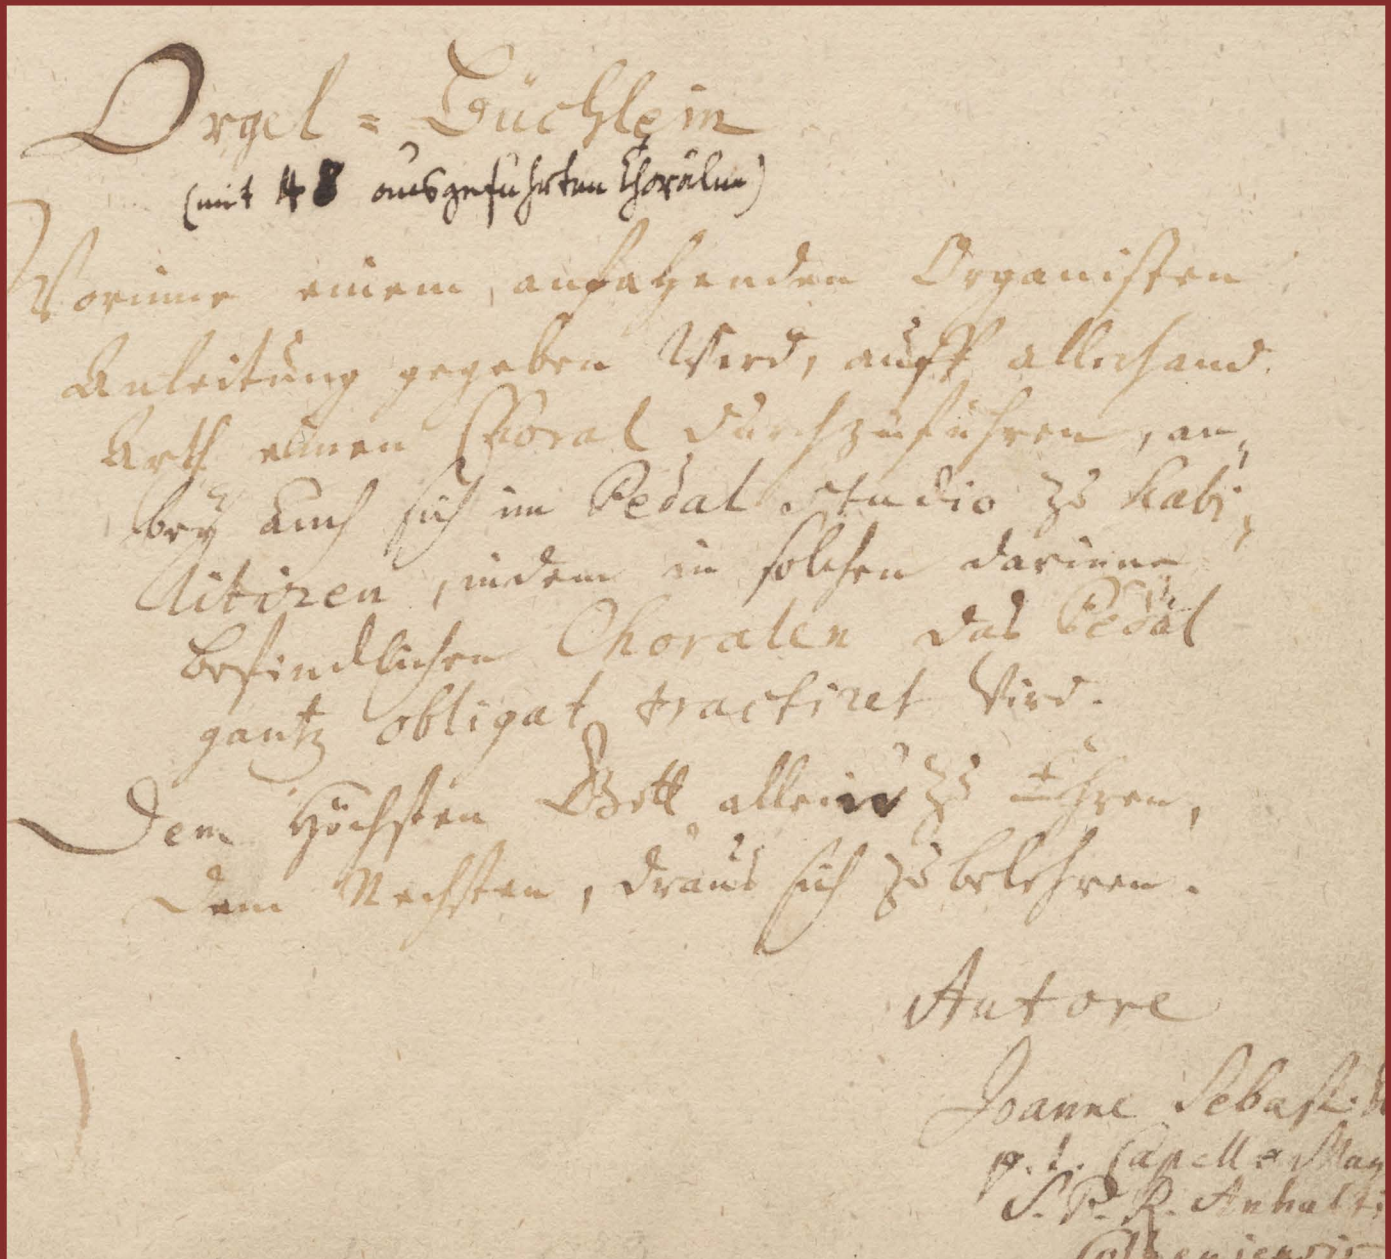 Orgel = Büchlein
(mit 48 ausgeführten Chorälen)
Worinne einem anfahenden Organisten
Anleitung gegeben wird, auff allerhand
Arth einen Choral durchzuführen, an=
bey auch sich im Pedal studio zu habi=
litiren, indem in solchen darinne
befindlichen Choralen das Pedal
gantz obligat tractiret wird.
Dem Höchsten Gott allein zu Ehren,
Dem Nechsten, draus sich zu belehren.
Autore
Joanne Sebast.
p. t. Capellæ Mag
S. P. R. Anhalti